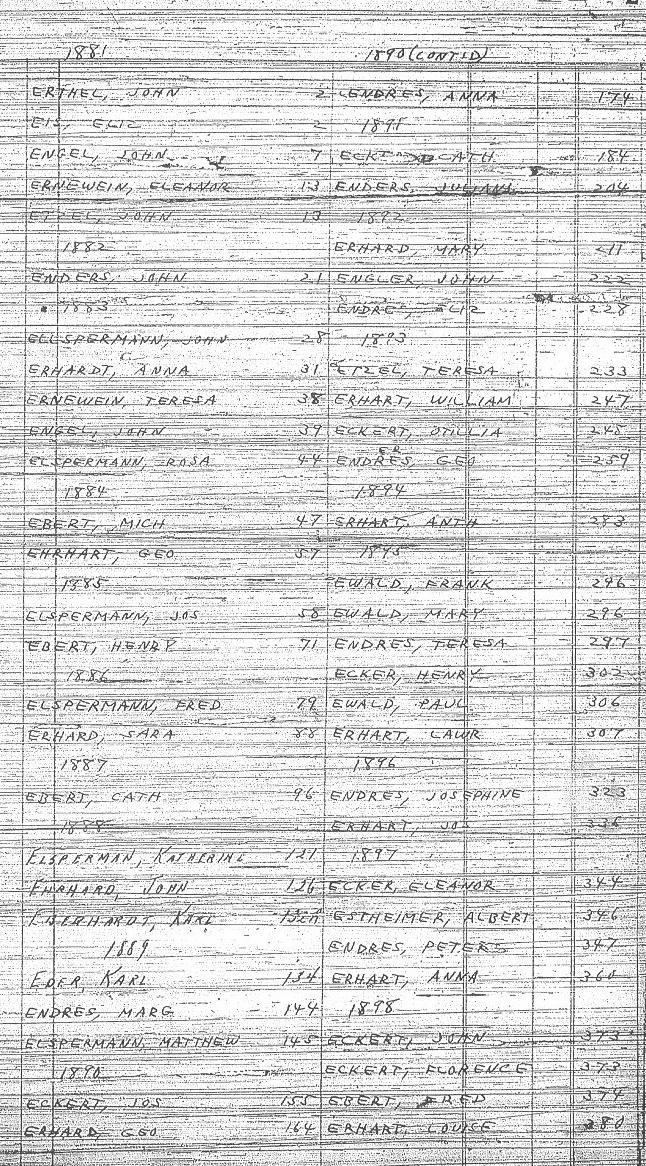 1881
ERTHEL, JOHN 2
EIS, ELIZ 2
ENGEL, JOHN 7
ERNEWEIN, ELEANOR 13
ETZEL, JOHN 13
1882
ENDERS, JOHN 21
1883
ELLSPERMANN, JOHN 28
ERHARDT, ANNA 31
ERNEWEIN, TERESA 38
ENGEL, JOHN 39
ELSPERMANN, ROSA 44
1884
EBERT, MICH 47
EHRHART, GEO 57
1885
ELSPERMANN, JOS 58
EBERT, HENRY 71
1886
ELSPERMANN, FRED 79
ERHARD, SARA 88
1887
EBERT, CATH 96
1888
ELSPERMAN, KATHERINE 121
EHRHARD, JOHN 126
EBERHARDT, KARL
1889
EDER, KARL 134
ENDRES, MARG 144
ELSPERMANN, MATTHEW 145
1890
ECKERT, JOS 155
ERHARD, GEO 164
1890 (CONT'D)
ENDRES, ANNA 174
1891
ECKT CATH 184
ENDERS, JULIANA 204
1892
ERHARD, MARY
ENGLER, JOHN 222
ENDRES, ELIZ 228
1893
ETZEL, TERESA 233
ERHART, WILLIAM 247
ECKERT, OTILLIA 248
ER
ENDRES, GEO 259
1894
ERHART, ANTH 283
1895
EWALD, FRANK 296
EWALD, MARY 296
ENDRES, TERESA 297
ECKER, HENRY 302
EWALD, PAUL 306
ERHART, LAWR 307
1896
ENDRES, JOSEPHINE 323
ERHART, JOS 336
1897
ECKER, ELEANOR 344
ESTHEIMER, ALBERT 346
ENDRES, PETER 347
ERHART, ANNA 360
1898
ECKERT, JOHN 373
ECKERT, FLORENCE 373
EBERT, FRED 374
ERHART, LOUISE 380